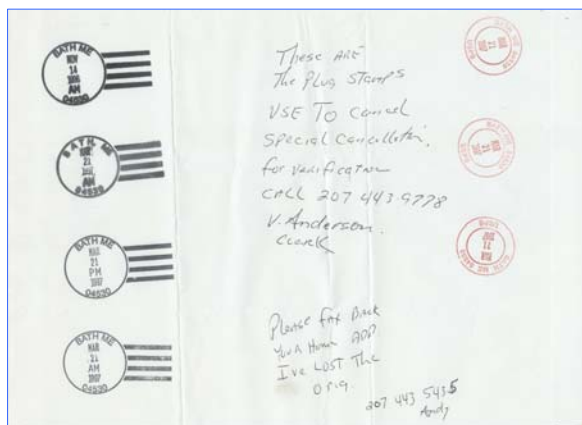 BATH ME
NOV
14
1996
AM
04530
BATH, ME
MAR
21
1997
AM
04530
BATH ME
MAR
21
PM
1997
04530
BATH ME
MAR
21
AM
1997
04530
These ARE
The Plug Stamps
USE To Cancel
Special Cancellation,
for verification
CALL 207 443-9778
V. Anderson.
Clerk
Please FAX Back
your Home ADD
I've LOST The
orig.
207 443 5435
Andy
MAR
21
1997
MAR
21
1997
BATH, ME 04530
MAR
21
1997
USPS